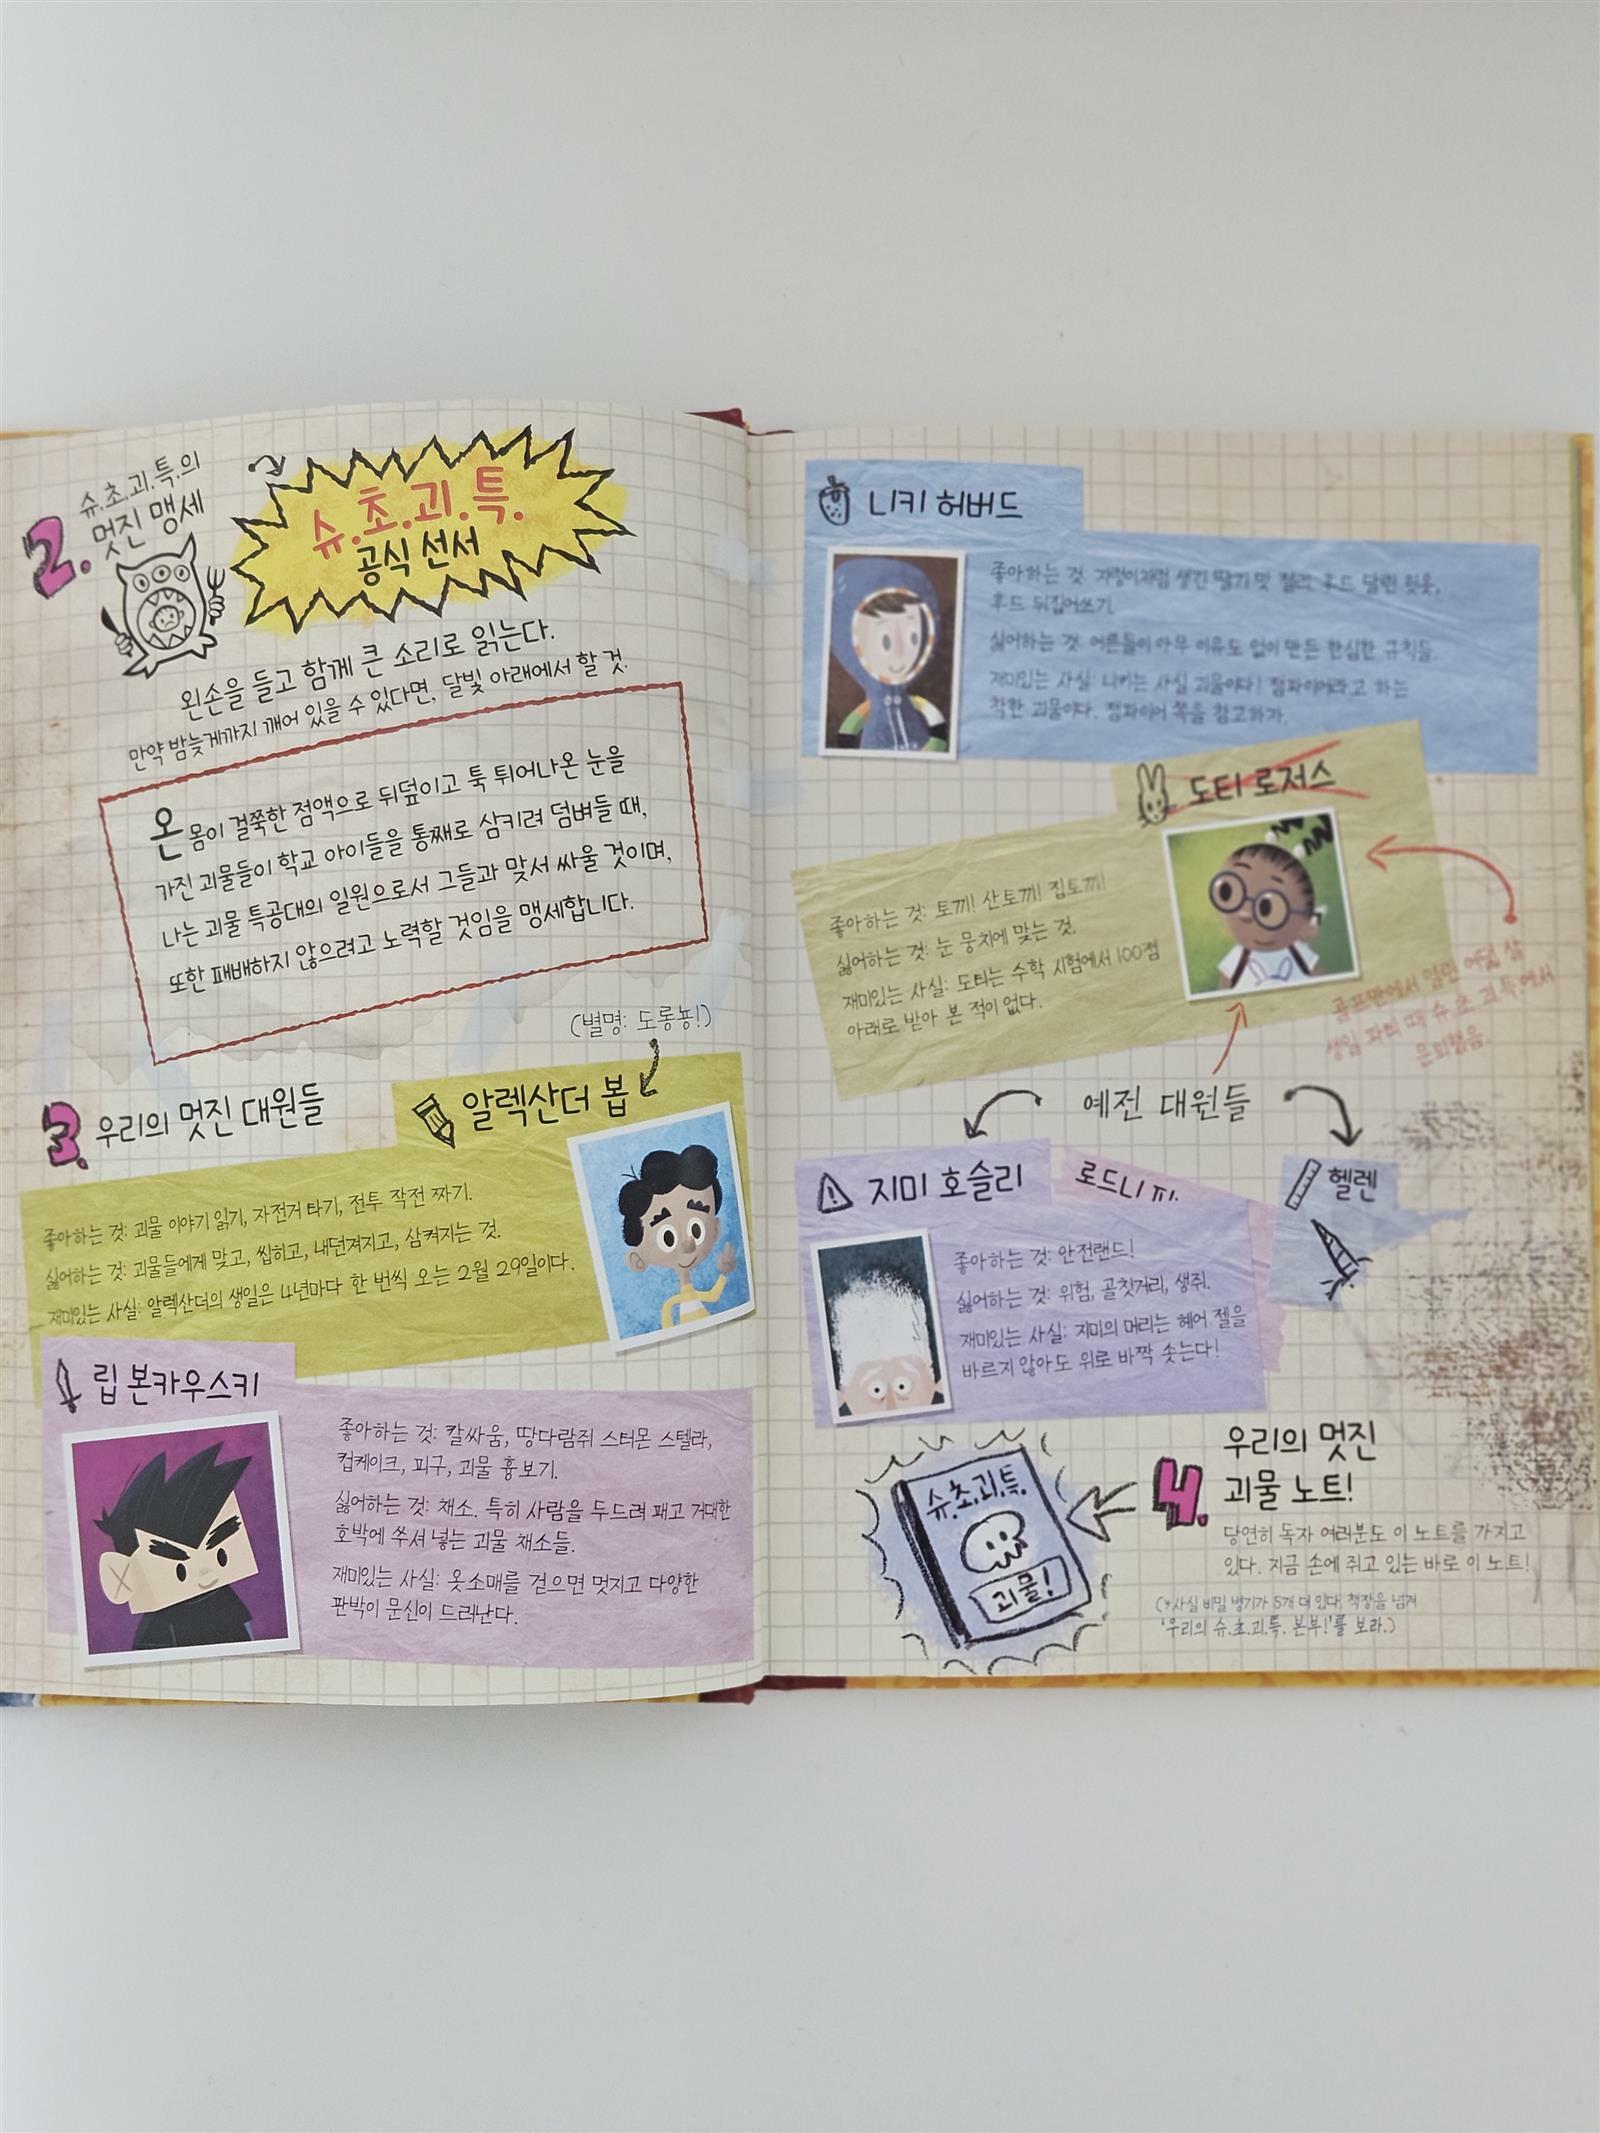 2.
슈.초.괴.특.의
멋진 맹세
슈.초.괴.특.
공식 선서
왼손을 들고 함께 큰 소리로 읽는다.
만약 밤늦게까지 깨어 있을 수 있다면, 달빛 아래에서 할 것.
온몸이 걸쭉한 점액으로 뒤덮이고 툭 튀어나온 눈을
가진 괴물들이 학교 아이들을 통째로 삼키려 덤벼들 때,
나는 괴물 특공대의 일원으로서 그들과 맞서 싸울 것이며,
또한 패배하지 않으려고 노력할 것임을 맹세합니다.
(별명: 도롱뇽!)
3. 우리의 멋진 대원들
알렉산더 봅
좋아하는 것: 괴물 이야기 읽기, 자전거 타기, 전투 작전 짜기.
싫어하는 것: 괴물들에게 맞고, 씹히고, 내던져지고, 삼켜지는 것.
재미있는 사실: 알렉산더의 생일은 4년마다 한 번씩 오는 2월 29일이다.
립 본카우스키
좋아하는 것: 칼싸움, 땅다람쥐 스터몬 스텔라,
컵케이크, 피구, 괴물 흉보기.
싫어하는 것: 채소. 특히 사람을 두드려 패고 거대한
호박에 쑤셔 넣는 괴물 채소들.
재미있는 사실: 옷소매를 걷으면 멋지고 다양한
판박이 문신이 드러난다.
니키 허버드
좋아하는 것: 지렁이처럼 생긴 딸기 맛 젤리, 후드 달린 윗옷,
후드 뒤집어쓰기.
싫어하는 것: 어른들이 아무 이유도 없이 만든 한심한 규칙들.
재미있는 사실: 니키는 사실 괴물이다! 점파이어라고 하는
착한 괴물이다. 점파이어 쪽을 참고하라.
도티 로저스
좋아하는 것: 토끼! 산토끼! 집토끼!
싫어하는 것: 눈 뭉치에 맞는 것.
재미있는 사실: 도티는 수학 시험에서 100점
아래로 받아 본 적이 없다.
골프면에서 열린 여덟 살
생일 파티 때 슈.초.괴.특.에서
은퇴했음.
예전 대원들
지미 호슬리
좋아하는 것: 안전랜드!
싫어하는 것: 위험, 골칫거리, 생쥐.
재미있는 사실: 지미의 머리는 헤어 젤을
바르지 않아도 위로 바짝 솟는다!
로드니 피.
헬렌
슈.초.괴.특.
괴물!
4. 우리의 멋진
괴물 노트!
당연히 독자 여러분도 이 노트를 가지고
있다. 지금 손에 쥐고 있는 바로 이 노트!
(*사실 비밀 병기가 5개 더 있다. 책장을 넘겨
'우리의 슈.초.괴.특. 본부!'를 보라.)